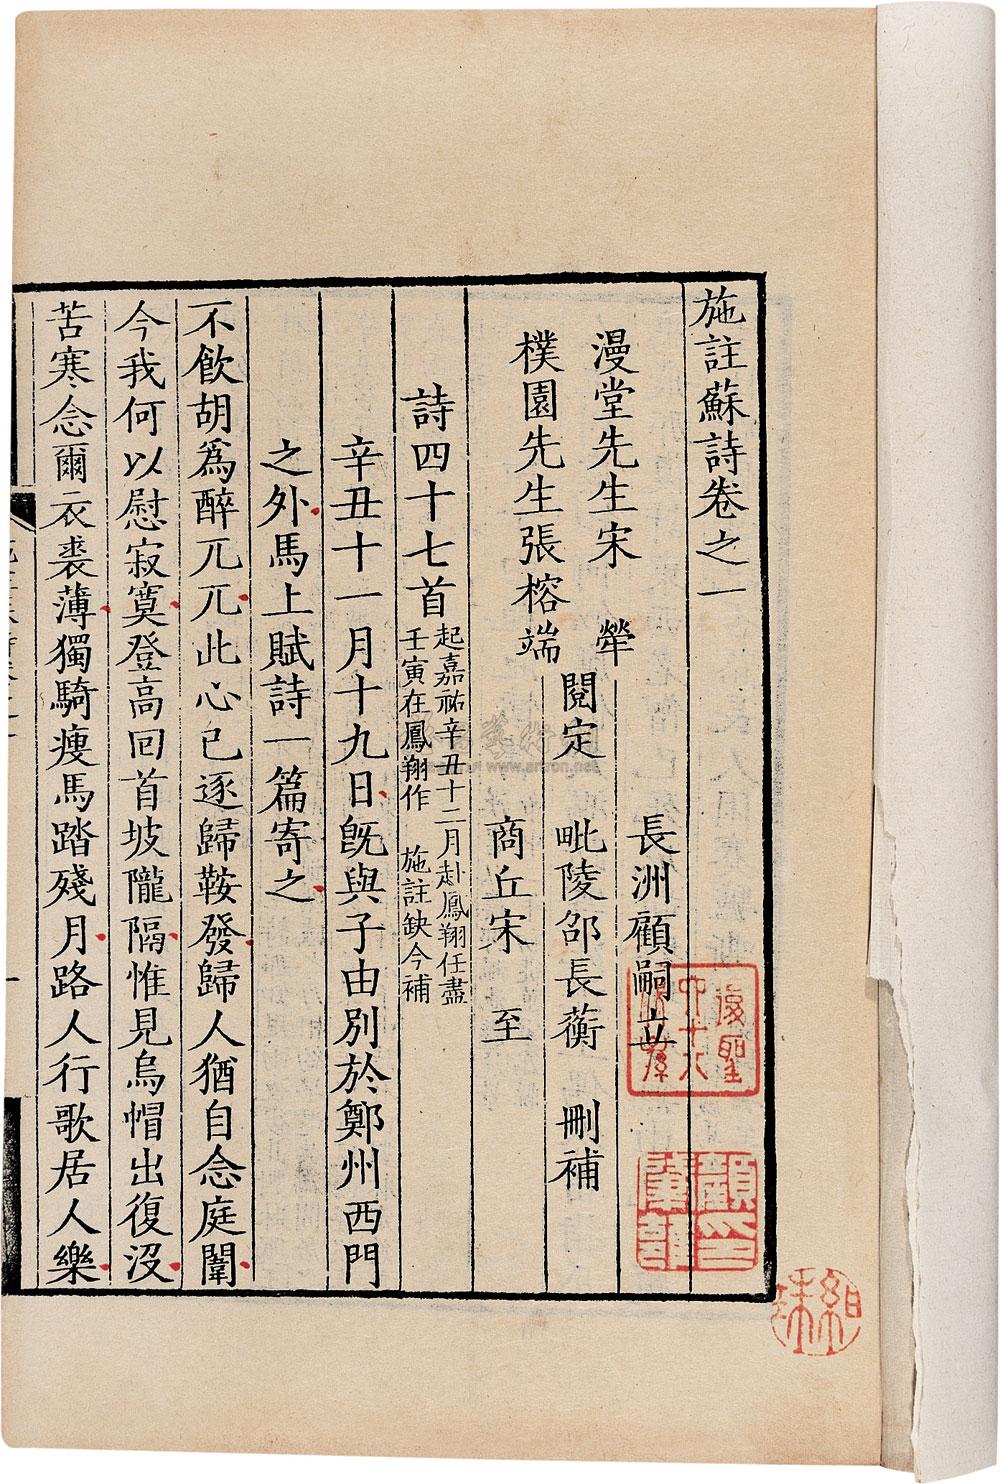 施註蘇詩卷之一
漫堂先生宋　犖
樸園先生張榕端
閱定
長洲顧嗣立
毗陵邵長蘅
商丘宋　至
刪補
詩四十七首
起嘉祐辛丑十二月赴鳳翔任盡
壬寅在鳳翔作　施註缺今補
辛丑十一月十九日旣與子由別於鄭州西門
之外馬上賦詩一篇寄之
不飮胡爲醉兀兀此心已逐歸鞍發歸人猶自念庭闈
今我何以慰寂寞登高回首坡隴隔惟見烏帽出復沒
苦寒念爾衣裘薄獨騎瘦馬踏殘月路人行歌居人樂